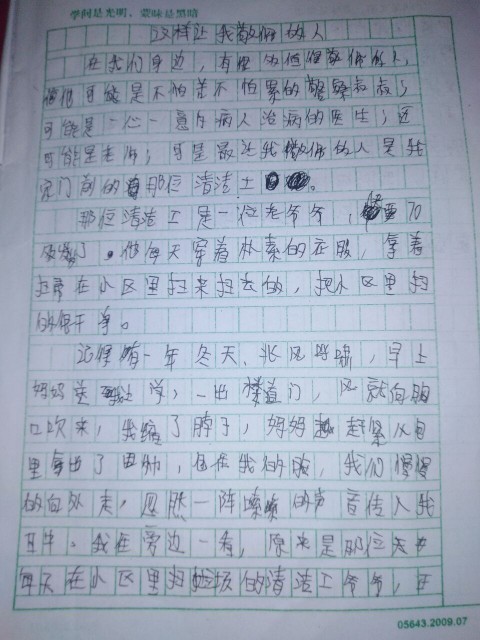 学问是光明，蒙昧是黑暗
这样让我敬佩的人
在我们身边，有 的值得敬佩的人，
他们可能是不怕苦不怕累的警察叔叔；
可能是一心一意为病人治病的医生；还
可能是老师；可是最让我敬佩的人是我
家门前的那位清洁工。
那位清洁工是一位老爷爷， 70
了。他每天穿着朴素的衣服，拿着
扫帚在小区里扫来扫去的，把小区里扫
的很干净。
记得有一年冬天，北风呼啸，早上
妈妈送我上学，一出楼道门，风就向胸
口吹来，我缩了脖子，妈妈赶紧从包
里拿出了围巾，包在我的脸，我们慢慢
的向外走，忽然一阵咳嗽的声音传入我
耳中。我往旁边一看，原来是那位
每天在小区里扫垃圾的清洁工爷爷，正
05643.2009.07